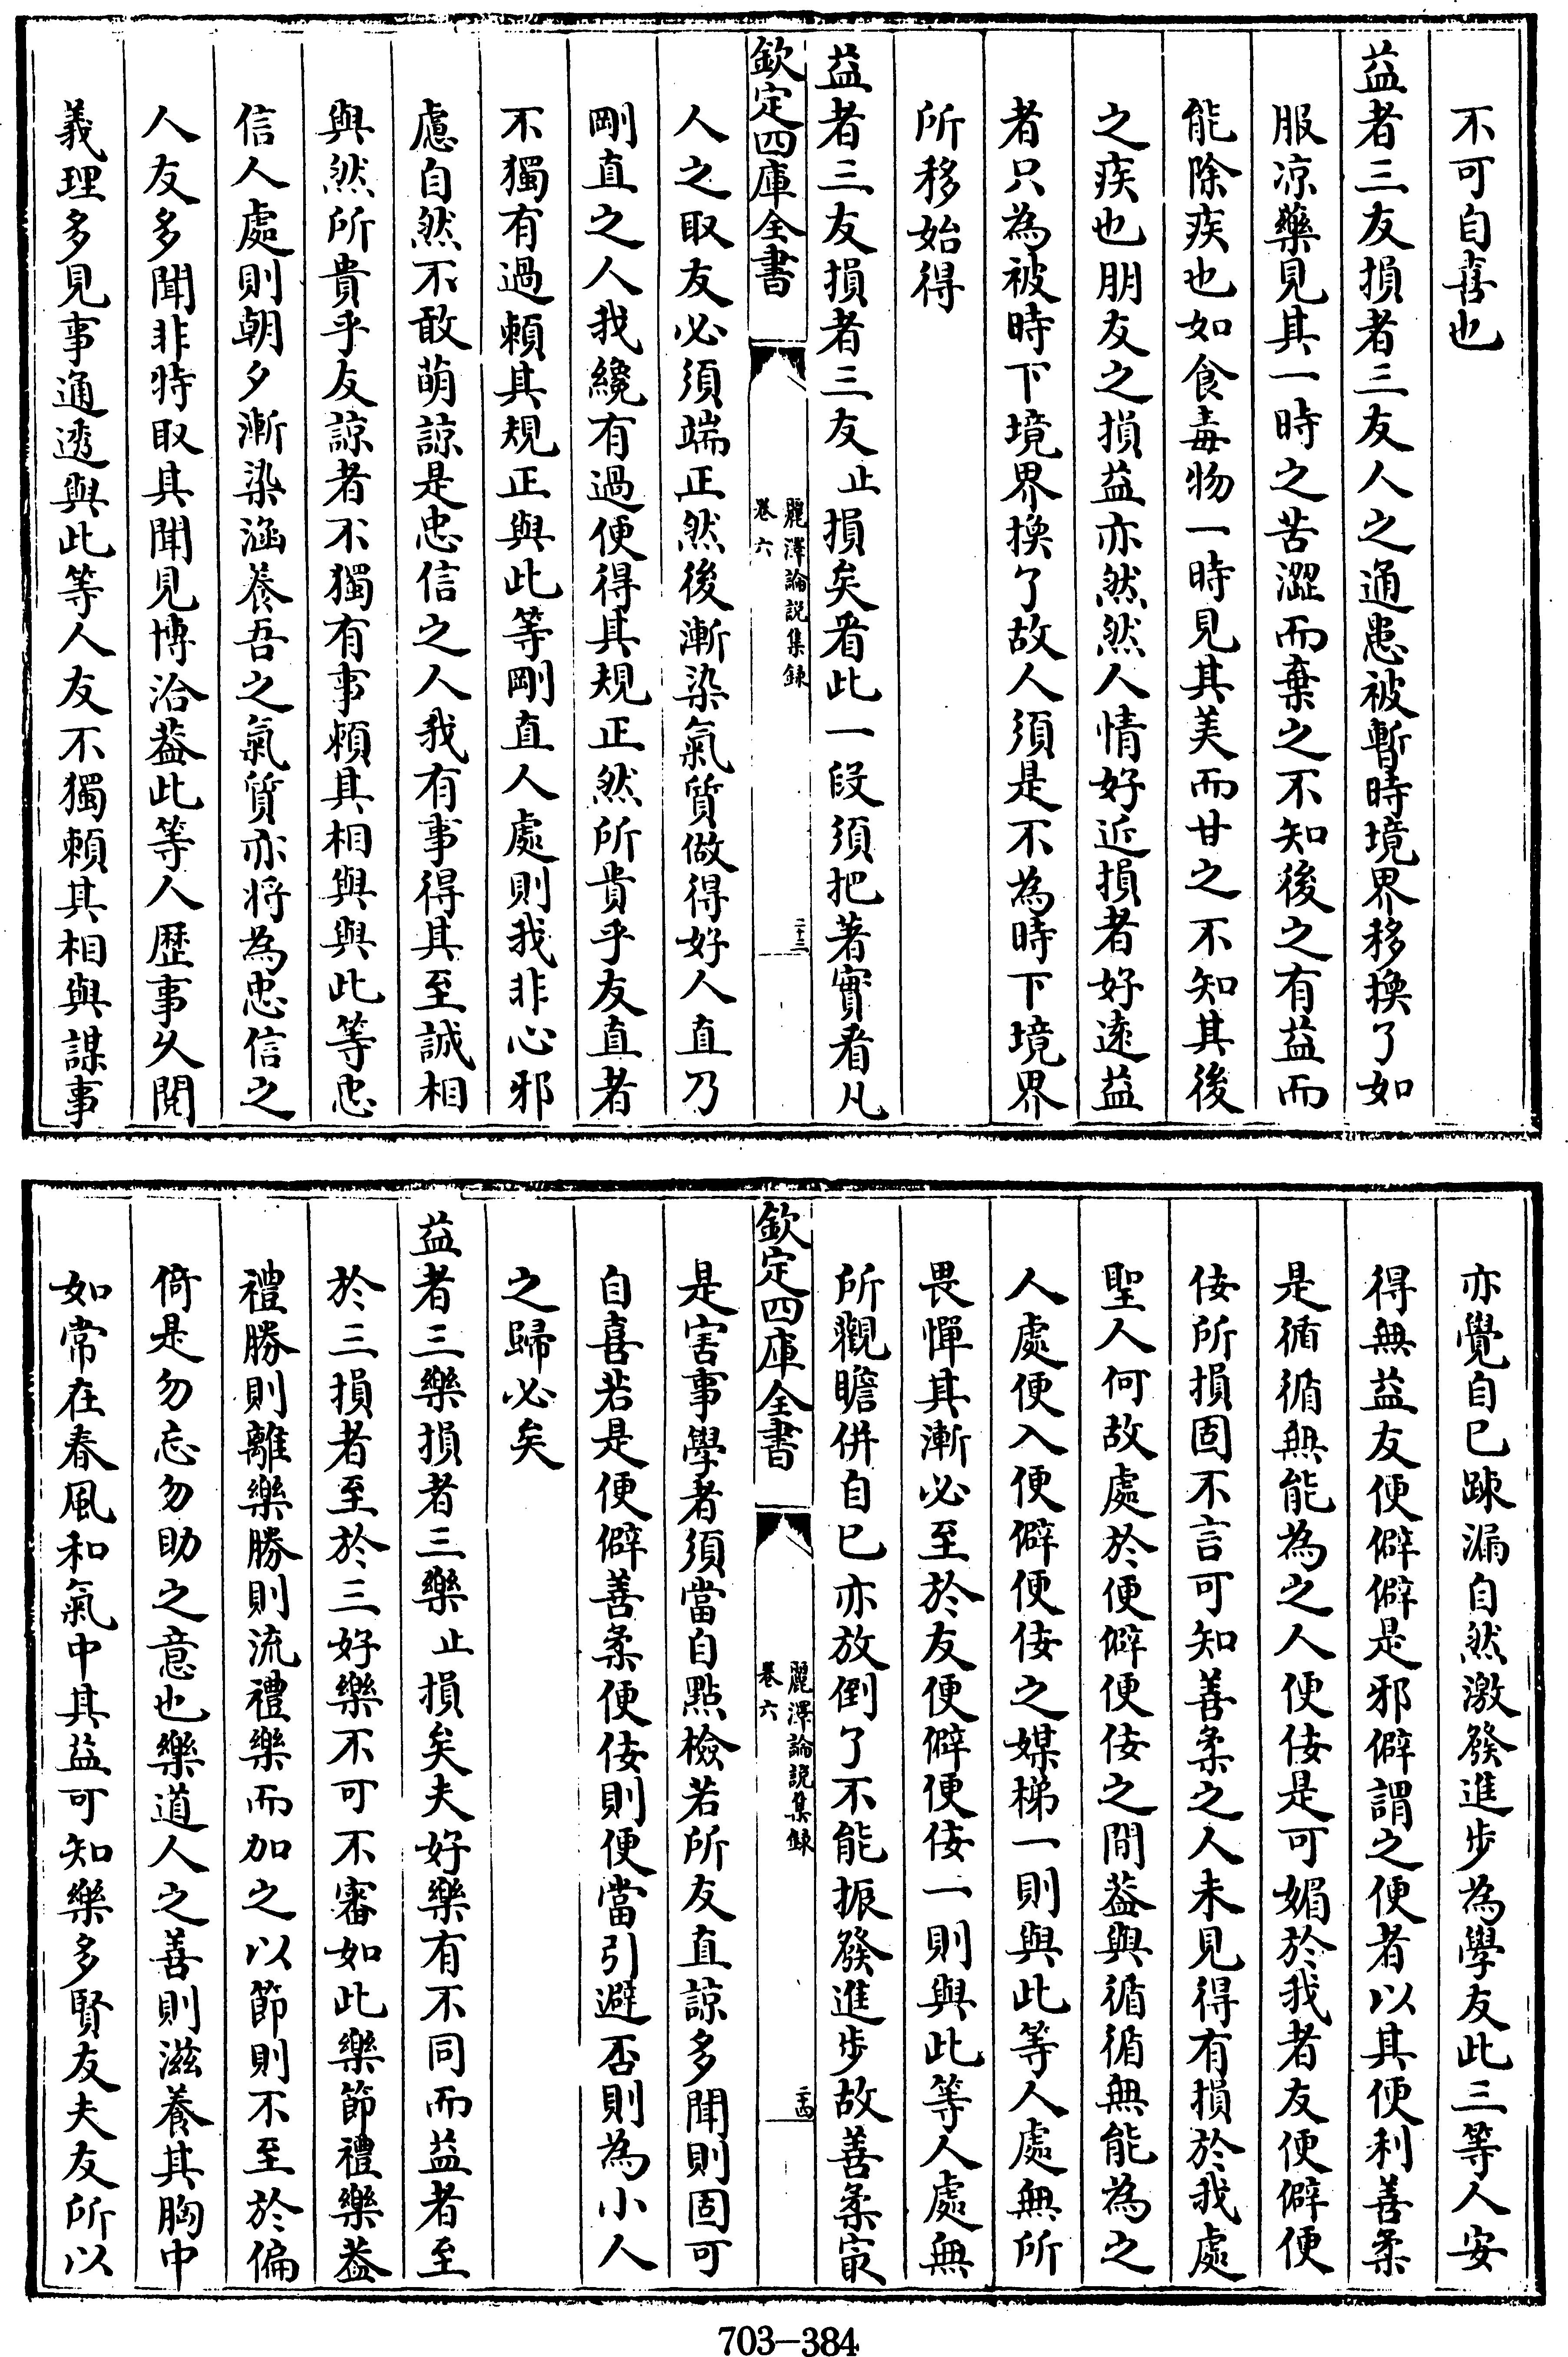 不可自喜也
益者三友損者三友人之通患被暫時境界移換了如
服涼藥見其一時之苦澀而棄之不知後之有益而
能除疾也如食毒物一時見其美而甘之不知其後
之疾也朋友之損益亦然然人情好近損者好遠益
者只為被時下境界換了故人須是不為時下境界
所移始得
益者三友損者三友止損矣看此一段須把著實看凡
欽定四庫全書
麗澤論說集錄
卷六
二十三
人之取友必須端正然後漸染氣質做得好人直乃
剛直之人我纔有過便得其規正然所貴乎友直者
不獨有過賴其規正與此等剛直人處則我非心邪
慮自然不敢萌諒是忠信之人我有事得其至誠相
與然所貴乎友諒者不獨有事賴其相與與此等忠
信人處則朝夕漸染涵養吾之氣質亦將為忠信之
人友多聞非特取其聞見博洽葢此等人歷事久閱
義理多見事通透與此等人友不獨賴其相與謀事
亦覺自已踈漏自然激發進步為學友此三等人安
得無益友便僻僻是邪僻謂之便者以其便利善柔
是循循無能為之人便佞是可媚於我者友便僻便
佞所損固不言可知善柔之人未見得有損於我處
聖人何故處於便僻便佞之間葢與循循無能為之
人處便入便僻便佞之媒梯一則與此等人處無所
畏憚其漸必至於友便僻便佞一則與此等人處無
所觀瞻併自已亦放倒了不能振發進步故善柔㝡
欽定四庫全書
麗澤論說集錄
卷六
二十四
是害事學者須當自點檢若所友直諒多聞則固可
自喜若是便僻善柔便佞則便當引避否則為小人
之歸必矣
益者三樂損者三樂止損矣夫好樂有不同而益者至
於三損者至於三好樂不可不審如此樂節禮樂葢
禮勝則離樂勝則流禮樂而加之以節則不至於偏
倚是勿忘勿助之意也樂道人之善則滋養其胸中
如常在春風和氣中其益可知樂多賢友夫友所以
703-384